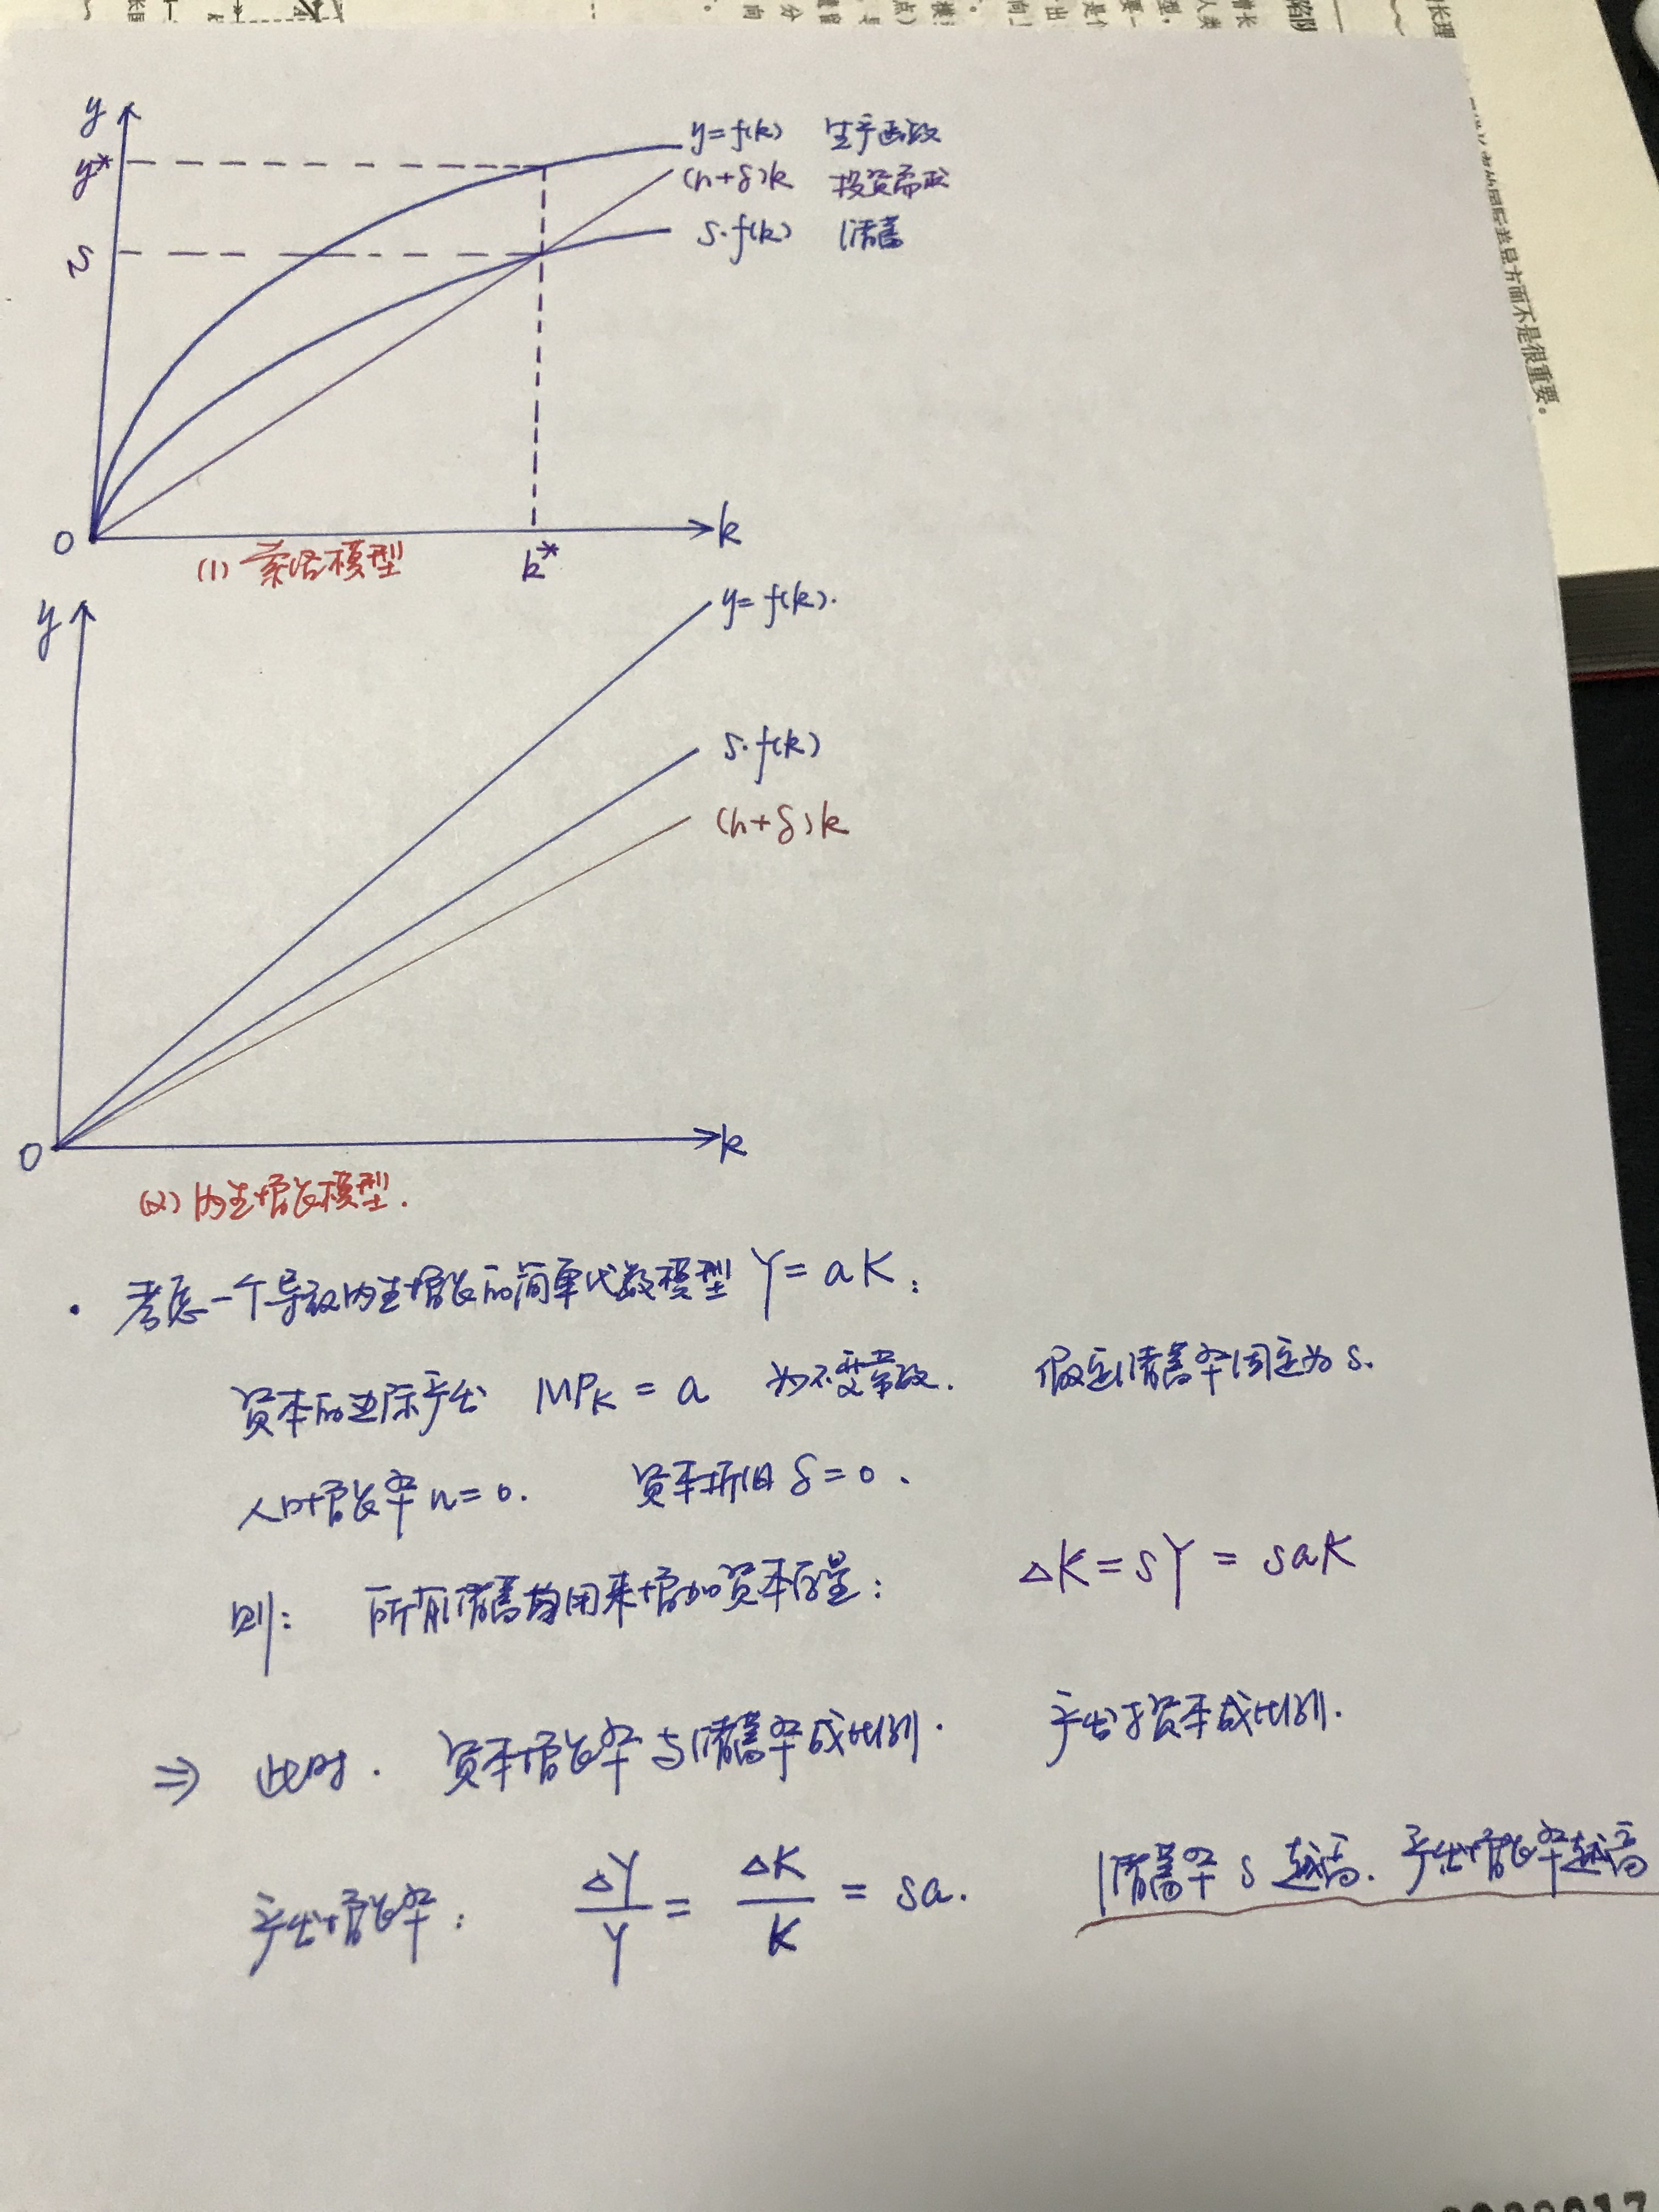 y
y*
y=f(k) 生产函数
(n+δ)k 投资需求
s·f(k) 储蓄
S
0
k
k*
(1) 索洛模型
y
y=f(k).
s·f(k)
(n+δ)k
0
k
(2) 内生增长模型.
· 考虑一个导致内生增长的简单代数模型 Y=aK:
资本的边际产出 MPK = a 为不变常数. 假定储蓄率固定为 s.
人口增长率 n=0. 资本折旧 δ=0.
则: 所有储蓄均用来增加资本存量: ΔK=sY=saK
⇒ 此时. 资本增长率与储蓄率成比例. 产出于资本成比例.
产出增长率: ΔY/Y = ΔK/K = sa. 储蓄率 s 越高. 产出增长率越高
方面不是很重要。